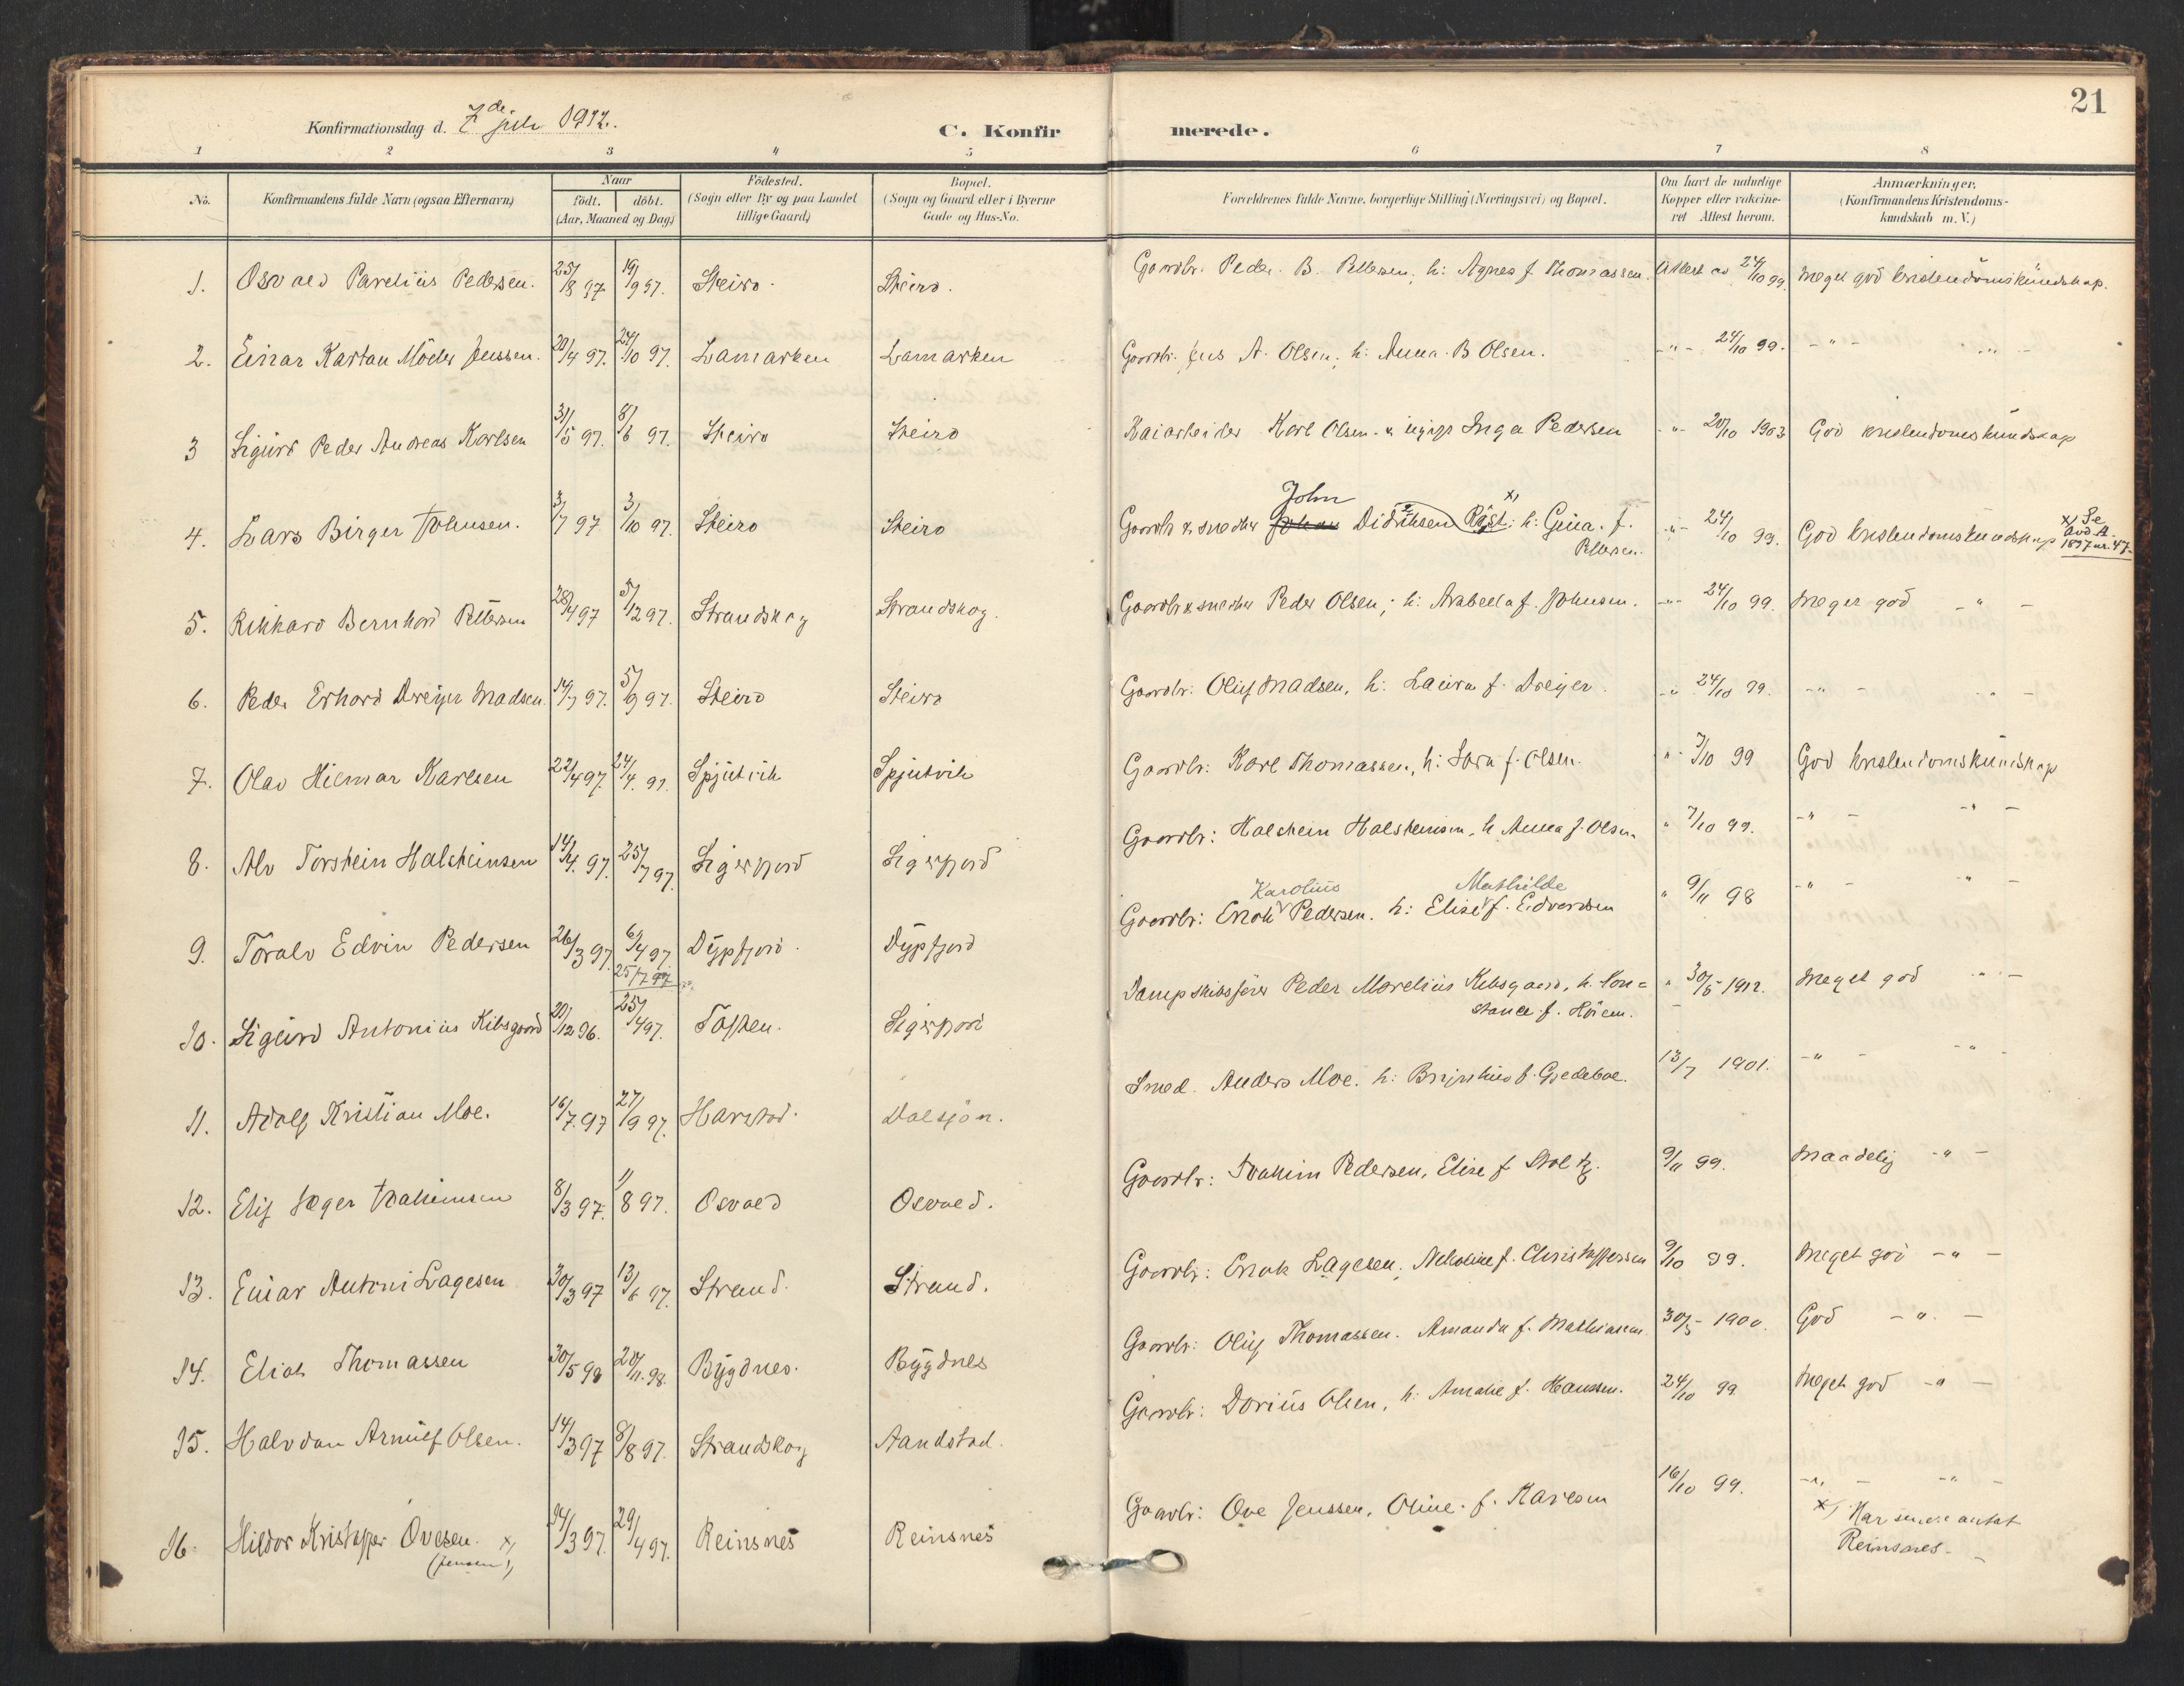 Konfirmationsdag d. 7de juli 1912.
C. Konfirmerede.
21
1 2 3 4 5 6 7 8
No. Konfirmandens fulde Navn (ogsaa Efternavn) Naar født. døbt. (Aar, Maaned og Dag) Födested. (Sogn eller By og paa Landet tillige Gaard) Bopæl. (Sogn og Gaard eller i Byerne Gade og Hus-No. Forældrenes fulde Navne, borgerlige Stilling (Næringsvei) og Bopæl. Om havt de naturlige Kopper eller vaccineret Attest herom. Anmærkninger. (Konfirmandens Kristendomskundskab m. V.)
1. Osvald Parelius Pedersen. 25/8 97 19/9 97. Steiro. Steiro. Gaardbr. Peder B. Pettersen, h: Agnes f. Thomassen. Attest av 24/10 99. Meget god kristendomskundskap.
2. Einar Kartau Möller Jenssen. 20/4 97. 24/10 97. Lamarken Lamarken Gaardbr. Jens A. Olsen, h: Anna B Olsen. -"- 24/10 99. -"- -"-
3 Sigurd Peder Andreas Karlsen 31/5 97. 8/6 97. Steiro Steiro Kaiarbeider Karl Olsen & ugift Inga Pedersen -"- 20/10 1903 God kristendomskundskap
4. Lars Birger Johnsen. 3/7 97 3/10 97. Steiro Steiro Gaardbr & snedker John Didriksen Røst: x) h: Gina f. Pettersen. -"- 24/10 99. God kristendomskundskap x) Se Avd. A. 1897 nr. 47.
5. Rikhard Bernhard Pettersen 28/4 97 5/12 97. Strandskog Strandskog. Gaardbr & snedker Peder Olsen; h: Arabella f. Johnsen. -"- 24/10 99. Meget god -"-
6. Peder Erhard Dreyer Madsen. 14/7 97. 5/9 97. Steiro Steiro Gaardbr: Oluf Madsen, h: Laura f. Dreyer. -"- 24/10 99. -"- -"-
7. Olav Hilmar Karlsen 22/4 97. 24/4. 97. Spjutvik Spjutvik Gaardbr: Karl Thomassen, h: Sara f. Olsen. " 7/10 99 God kristendomskundskap
8. Alv Torstein Halsteinsen 14/4. 97. 25/7 97. Sigerfjord Sigerfjord Gaardbr: Halstein Halsteinsen, h Anna f. Olsen " 7/10 99. -"- -"-
9. Toralv Edvin Pedersen 26/3 97. 6/4 97. 25/7 97 Dypfjord. Dypfjord Gaardbr: Enok Karolius Pedersen. h: Elise Mathilde f. Edvardsen " 9/11 98 -"- -"-
10. Sigurd Antonius Kibsgaard 20/12 96. 25/4 97. Toften. Sigerfjord Dampskibsfører Peder Marelius Kibsgaard, h. Konstance f. Høiem. " 30/5 1912. Meget god -"-
11. Adolf Kristian Moe. 16/7. 97 27/9 97. Harstad. Dalsjøn. Smed. Anders Moe. h: f. Gjedeboe. 13/7 1901. -"- -"-
12. Elif Jæger Joakimsen 8/3 97. 1/8 97. Osvold Osvold. Gaardbr: Joakim Pedersen, Elise f Stoltz. 9/11 99. Maadelig -"-
13. Einar Antoni Lagesen 30/3 97 13/6 97. Strand. Strand. Gaardbr: Enok Lagesen, f. Christoffersen 9/10 99. Meget god -"-
14. Elias Thomassen 30/5 98 20/11. 98. Bygdnes. Bygdnes Gaardbr: Oluf Thomassen. Amanda f. Mathiasen 30/5 1900. God -"-
15. Halvdan Arnulf Olsen. 14/3 97 8/8 97. Strandskog Aandstad. Gaardbr: Dorius Olsen, h: Amalie f. Hansen. 24/10 99 Meget god -"-
16. Hildor Kristoffer Ovesen. x) (Jensen!) 14/3 97. 29/4 97. Reinsnes Reinsnes Gaardbr: Ove Jenssen, Oline f. Karlsen 16/10 99. -"- -"-
x) Har senere antat Reinsnes.